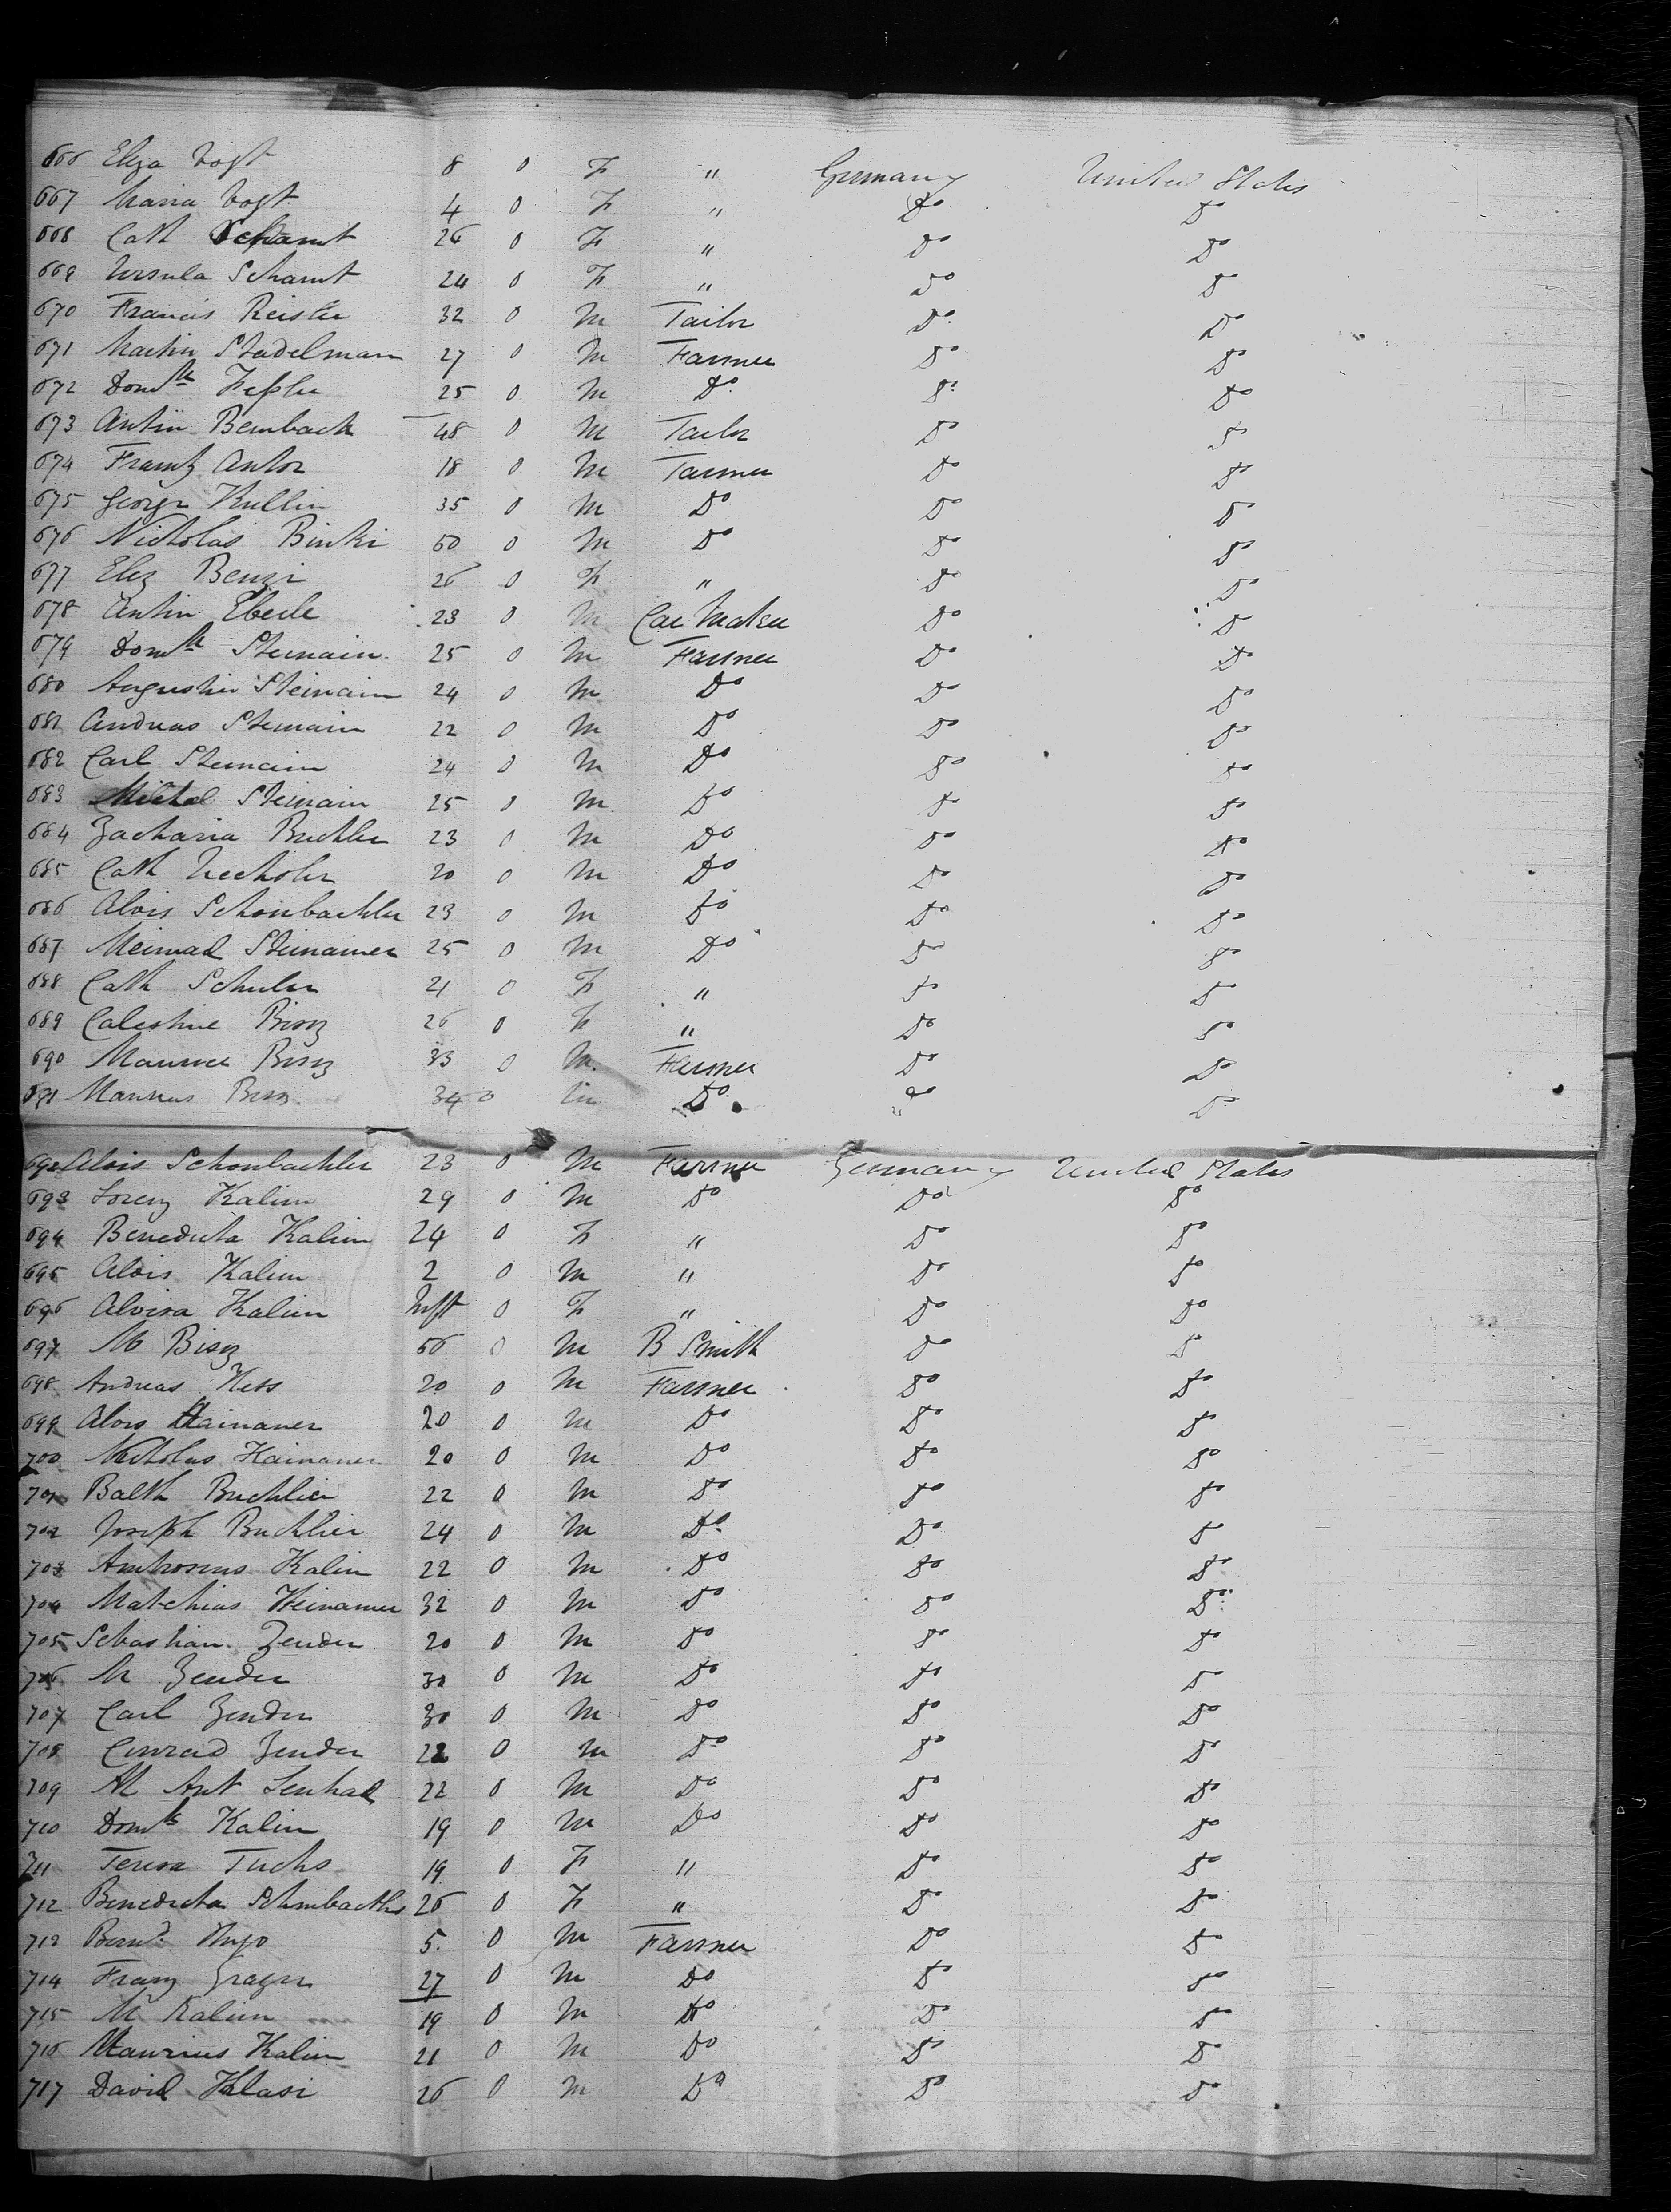 666 Eliza Vogt 8 0 F " Germany United States
667 Maria Vogt 4 0 F " Do Do
668 Cath Schamt 26 0 F " Do Do
669 Ursula Schamt 24 0 F " Do Do
670 Francis Reisler 32 0 M Tailor Do Do
671 Martin Stadelman 27 0 M Farmer Do Do
672 Domk Fessler 25 0 M Do Do Do
673 Antin Bembach 48 0 M Tailor Do Do
674 Frantz Antor 18 0 M Farmer Do Do
675 George Kullin 35 0 M Do Do Do
676 Nicholas Binki 60 0 M Do Do Do
677 Eliz Benzi 26 0 F " Do Do
678 Antin Eberle 23 0 M Car Maker Do Do
679 Domk Steinain 25 0 M Farmer Do Do
680 Augustin Steinain 24 0 M Do Do Do
681 Andreas Steinain 22 0 M Do Do Do
682 Carl Steinain 24 0 M Do Do Do
683 Michel Steinain 25 0 M Do Do Do
684 Zacharia Buchler 23 0 M Do Do Do
685 Cath 20 0 M Do Do Do
686 Alois Schonbachler 23 0 M Do Do Do
687 Meinrad Steinainer 25 0 M Do Do Do
688 Cath Schuler 21 0 F " Do Do
689 Calestine Bisig 26 0 F " Do Do
690 Maurice Bisig 33 0 M Farmer Do Do
691 Maurus Bisig 34 0 M Do Do Do
692 Alois Schonbachler 23 0 M Farmer Germany United States
693 Lorenz Kalinn 29 0 M Do Do Do
694 Benedicta Kalinn 24 0 F " Do Do
695 Alois Kalinn 2 0 M " Do Do
696 Aloisa Kalinn Inft 0 F " Do Do
697 M Bisig 56 0 M B Smith Do Do
698 Andreas Hess 20 0 M Farmer Do Do
699 Alois Hainaner 20 0 M Do Do Do
700 Nicholas Hainaner 20 0 M Do Do Do
701 Balth Buchlier 22 0 M Do Do Do
702 Joseph Buchlier 24 0 M Do Do Do
703 Ambrosius Kalin 22 0 M Do Do Do
704 Matchias Heinamer 32 0 M Do Do Do
705 Sebastian Zender 20 0 M Do Do Do
706 M Zender 30 0 M Do Do Do
707 Carl Zender 30 0 M Do Do Do
708 Conrad Zender 22 0 M Do Do Do
709 M Ant Lenhad 22 0 M Do Do Do
710 Domk Kalin 19 0 M Do Do Do
711 Teresa Fuchs 19 0 F " Do Do
712 Benedicta Schnbachler 26 0 F " Do Do
713 Bernd Hugo 5 0 M Farmer Do Do
714 Franz 27 0 M Do Do Do
715 M Kalinn 19 0 M Do Do Do
716 Maurius Kalinn 21 0 M Do Do Do
717 David Klasi 26 0 M Do Do Do